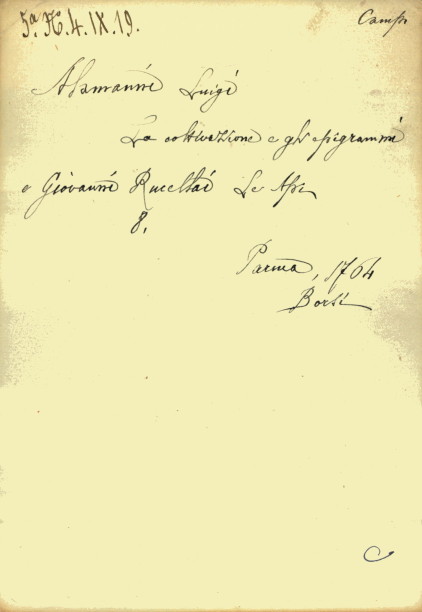 5ª.H.4.IX.19. Camp.
Alamanni Luigi
La coltivazione e gli epigrammi
e Giovanni Rucellai Le Api
8.
Parma, 1764
Borsi
C